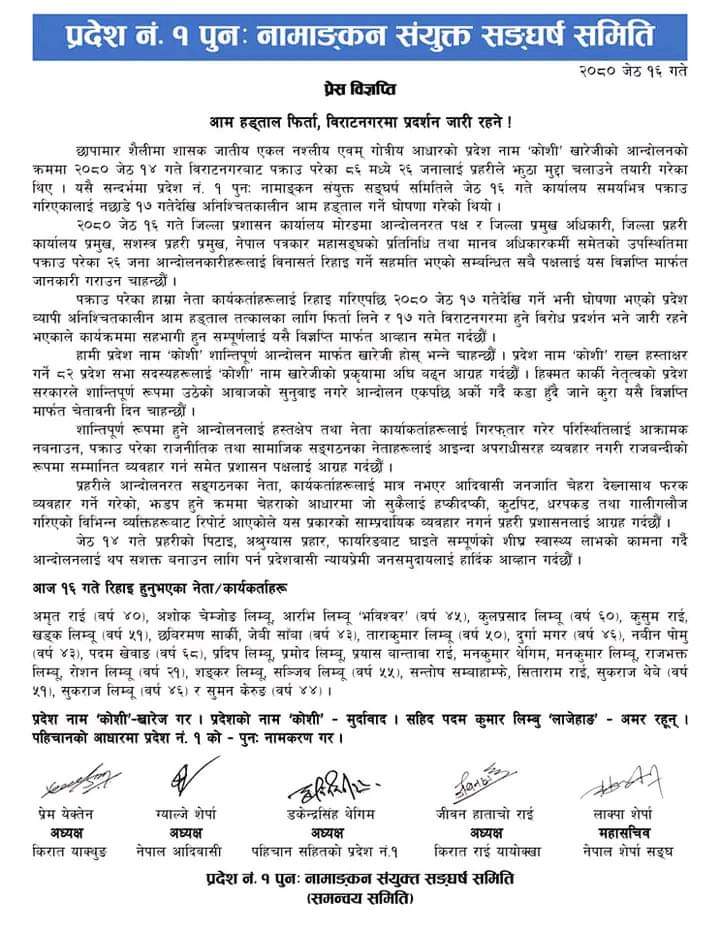 प्रदेश नं. १ पुनः नामाङ्कन संयुक्त सङ्घर्ष समिति
२०८० जेठ १६ गते
प्रेस विज्ञप्ति
आम हड्ताल फिर्ता, विराटनगरमा प्रदर्शन जारी रहने !
छापामार शैलीमा शासक जातीय एकल नश्लीय एवम् गोत्रीय आधारको प्रदेश नाम 'कोशी' खारेजीको आन्दोलनको
क्रममा २०८० जेठ १४ गते विराटनगरबाट पक्राउ परेका ८६ मध्ये २६ जनालाई प्रहरीले झुठा मुद्दा चलाउने तयारी गरेका
थिए । यसै सन्दर्भमा प्रदेश नं. १ पुनः नामाङ्कन संयुक्त सङ्घर्ष समितिले जेठ १६ गते कार्यालय समयभित्र पक्राउ
गरिएकालाई नछाडे १७ गतेदेखि अनिश्चितकालीन आम हड्ताल गर्ने घोषणा गरेको थियो ।
२०८० जेठ १६ गते जिल्ला प्रशासन कार्यालय मोरङमा आन्दोलनरत पक्ष र जिल्ला प्रमुख अधिकारी, जिल्ला प्रहरी
कार्यालय प्रमुख, सशस्त्र प्रहरी प्रमुख, नेपाल पत्रकार महासङ्घको प्रतिनिधि तथा मानव अधिकारकर्मी समेतको उपस्थितिमा
पक्राउ परेका २६ जना आन्दोलनकारीहरूलाई विनासर्त रिहाइ गर्ने सहमति भएको सम्बन्धित सवै पक्षलाई यस विज्ञप्ति मार्फत
जानकारी गराउन चाहन्छौं ।
पक्राउ परेका हाम्रा नेता कार्यकर्ताहरूलाई रिहाइ गरिएपछि २०८० जेठ १७ गतेदेखि गर्ने भनी घोषणा भएको प्रदेश
व्यापी अनिश्चितकालीन आम हड्ताल तत्कालका लागि फिर्ता लिने र १७ गते विराटनगरमा हुने विरोध प्रदर्शन भने जारी रहने
भएकाले कार्यक्रममा सहभागी हुन सम्पूर्णलाई यसै विज्ञप्ति मार्फत आव्हान समेत गर्दछौं ।
हामी प्रदेश नाम 'कोशी' शान्तिपूर्ण आन्दोलन मार्फत खारेजी होस् भन्ने चाहन्छौं । प्रदेश नाम 'कोशी' राख्न हस्ताक्षर
गर्ने ८२ प्रदेश सभा सदस्यहरूलाई 'कोशी' नाम खारेजीको प्रकृयामा अघि बढ्न आग्रह गर्दछौं । हिक्मत कार्की नेतृत्वको प्रदेश
सरकारले शान्तिपूर्ण रूपमा उठेको आवाजको सुनुवाइ नगरे आन्दोलन एकपछि अर्को गर्दै कडा हुँदै जाने कुरा यसै विज्ञप्ति
मार्फत चेतावनी दिन चाहन्छौं ।
शान्तिपूर्ण रूपमा हुने आन्दोलनलाई हस्तक्षेप तथा नेता कार्यकर्ताहरूलाई गिरफ्तार गरेर परिस्थितिलाई आक्रामक
नबनाउन, पक्राउ परेका राजनीतिक तथा सामाजिक सङ्गठनका नेताहरूलाई आइन्दा अपराधीसरह व्यवहार नगरी राजबन्दीको
रूपमा सम्मानित व्यवहार गर्न समेत प्रशासन पक्षलाई आग्रह गर्दछौं ।
प्रहरीले आन्दोलनरत सङ्गठनका नेता, कार्यकर्ताहरूलाई मात्र नभएर आदिवासी जनजाति चेहरा देख्नासाथ फरक
व्यवहार गर्ने गरेको, झडप हुने क्रममा चेहराको आधारमा जो सुकैलाई हप्कीदप्की, कुटपिट, धरपकड तथा गालीगलौज
गरिएको विभिन्न व्यक्तिहरूबाट रिपोर्ट आएकोले यस प्रकारको साम्प्रदायिक व्यवहार नगर्न प्रहरी प्रशासनलाई आग्रह गर्दछौं ।
जेठ १४ गते प्रहरीको पिटाइ, अश्रुग्यास प्रहार, फायरिङबाट घाइते सम्पूर्णको शीघ्र स्वास्थ्य लाभको कामना गर्दै
आन्दोलनलाई थप सशक्त बनाउन लागि पर्न प्रदेशवासी न्यायप्रेमी जनसमुदायलाई हार्दिक आव्हान गर्दछौं ।
आज १६ गते रिहाइ हुनुभएका नेता/कार्यकर्ताहरू
अमृत राई (वर्ष ४०), अशोक चेम्जोङ लिम्बू, आरभि लिम्बू 'भविश्वर' (वर्ष ४५), कुलप्रसाद लिम्बू (वर्ष ६०), कुसुम राई,
खड्क लिम्बू (वर्ष ५१), छविरमण सार्की, जेवी साँबा (वर्ष ४३), ताराकुमार लिम्बू (वर्ष ५०), दुर्गा मगर (वर्ष ४६), नवीन पोमु
(वर्ष ४३), पदम खेवाङ (वर्ष ६८), प्रदिप लिम्बू, प्रमोद लिम्बू, प्रयास वान्तावा राई, मनकुमार थेगिम, मनकुमार लिम्बू, राजभक्त
लिम्बू, रोशन लिम्बू (वर्ष २१), शङ्कर लिम्बू, सञ्जिव लिम्बू (वर्ष ५५), सन्तोष सम्बाहाम्फे, सिताराम राई, सुकराज थेबे (वर्ष
५१), सुकराज लिम्बू (वर्ष ४६) र सुमन केरुङ (वर्ष ४४) ।
प्रदेश नाम 'कोशी'-खारेज गर । प्रदेशको नाम 'कोशी' - मुर्दावाद । सहिद पदम कुमार लिम्बु 'लाजेहाङ' - अमर रहून् ।
पहिचानको आधारमा प्रदेश नं. १ को - पुनः नामकरण गर ।
प्रेम येक्तेन ग्याल्जे शेर्पा डकेन्द्रसिंह थेगिम जीवन हाताचो राई लाक्पा शेर्पा
अध्यक्ष अध्यक्ष अध्यक्ष अध्यक्ष महासचिव
किरात याक्थुङ नेपाल आदिवासी पहिचान सहितको प्रदेश नं.१ किरात राई यायोक्खा नेपाल शेर्पा सङ्घ
प्रदेश नं. १ पुनः नामाङ्कन संयुक्त सङ्घर्ष समिति
(समन्वय समिति)